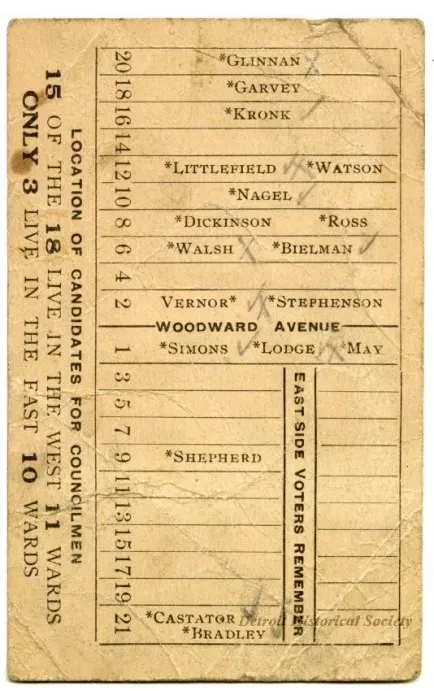 15 OF THE 18 LIVE IN THE WEST 11 WARDS
ONLY 3 LIVE IN THE EAST 10 WARDS
LOCATION OF CANDIDATES FOR COUNCILMEN
20 *GLINNAN
18 *GARVEY
16 *KRONK
14
12 *LITTLEFIELD *WATSON
10 *NAGEL
8 *DICKINSON *ROSS
6 *WALSH *BIELMAN
4
2 VERNOR* *STEPHENSON
WOODWARD AVENUE
1 *SIMONS *LODGE *MAY
3
5
7
9 *SHEPHERD
11
13
15
17
19
21 *CASTATOR
*BRADLEY
EAST SIDE VOTERS REMEMBER
Detroit Historical Society